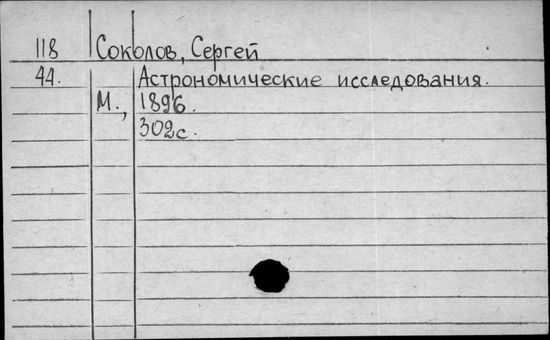 118 Соколов, Сергей
44. Астрономические исследования.
М., 1896.
302с.